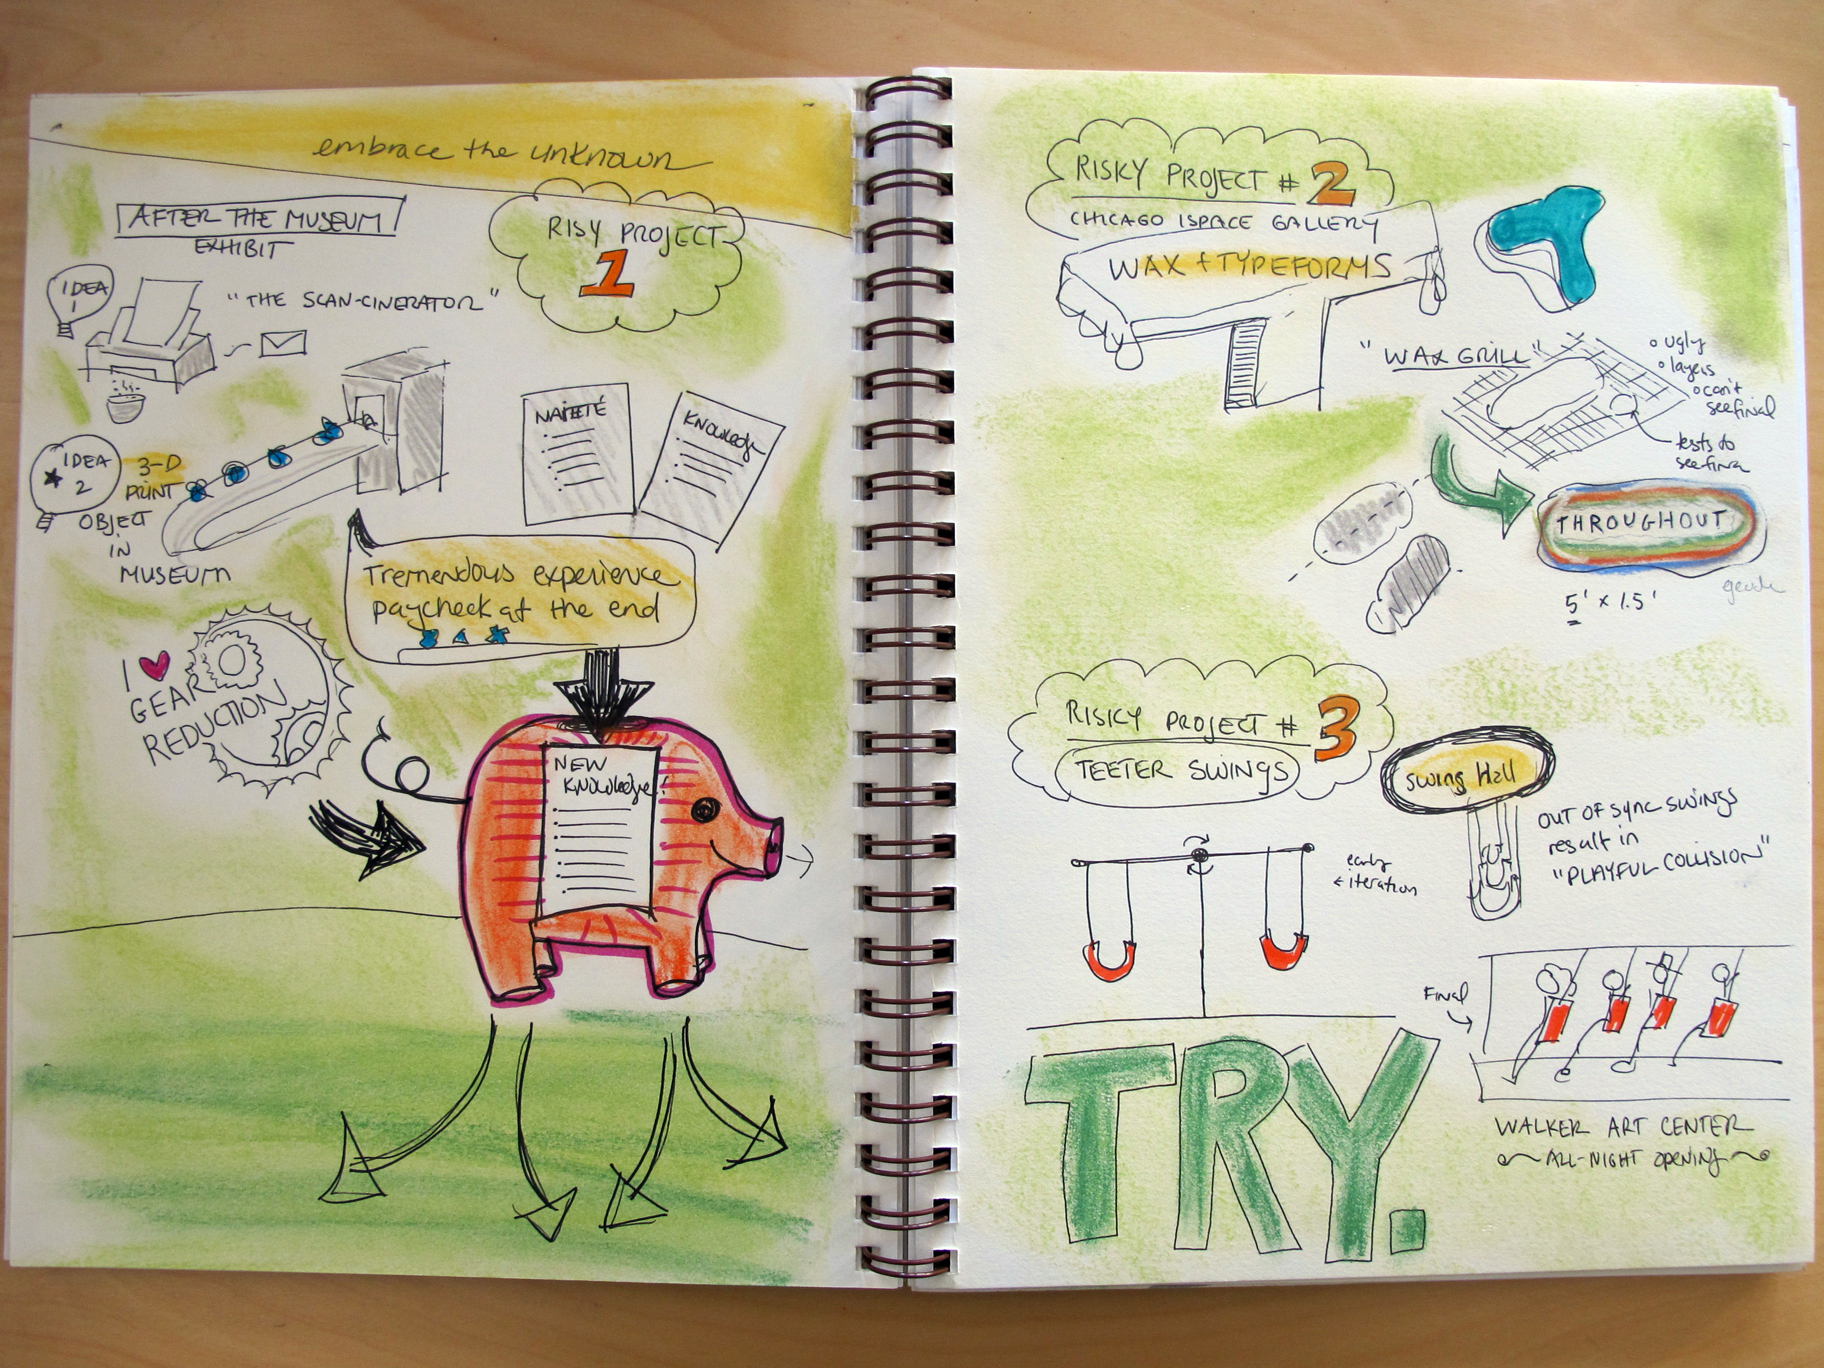 embrace the unknown
AFTER THE MUSEUM
EXHIBIT
RISY PROJECT
1
IDEA
1
"THE SCAN-CINERATOR"
IDEA
2
3-D
PRINT
OBJECT
IN
MUSEUM
KNOWLEDGE
Tremendous experience
paycheck at the end
I ♥
GEAR
REDUCTION
NEW
KNOWLEDGE!
RISKY PROJECT # 2
CHICAGO ISPACE GALLERY
WAX + TYPEFORMS
"WAX GRILL"
ugly
layers
can't
see final
tests to
see final
THROUGHOUT
5' x 1.5'
RISKY PROJECT # 3
TEETER SWINGS
Swing Hall
OUT OF SYNC SWINGS
result in
"PLAYFUL COLLISION"
early
iteration
FINAL
TRY.
WALKER ART CENTER
ALL-NIGHT opening